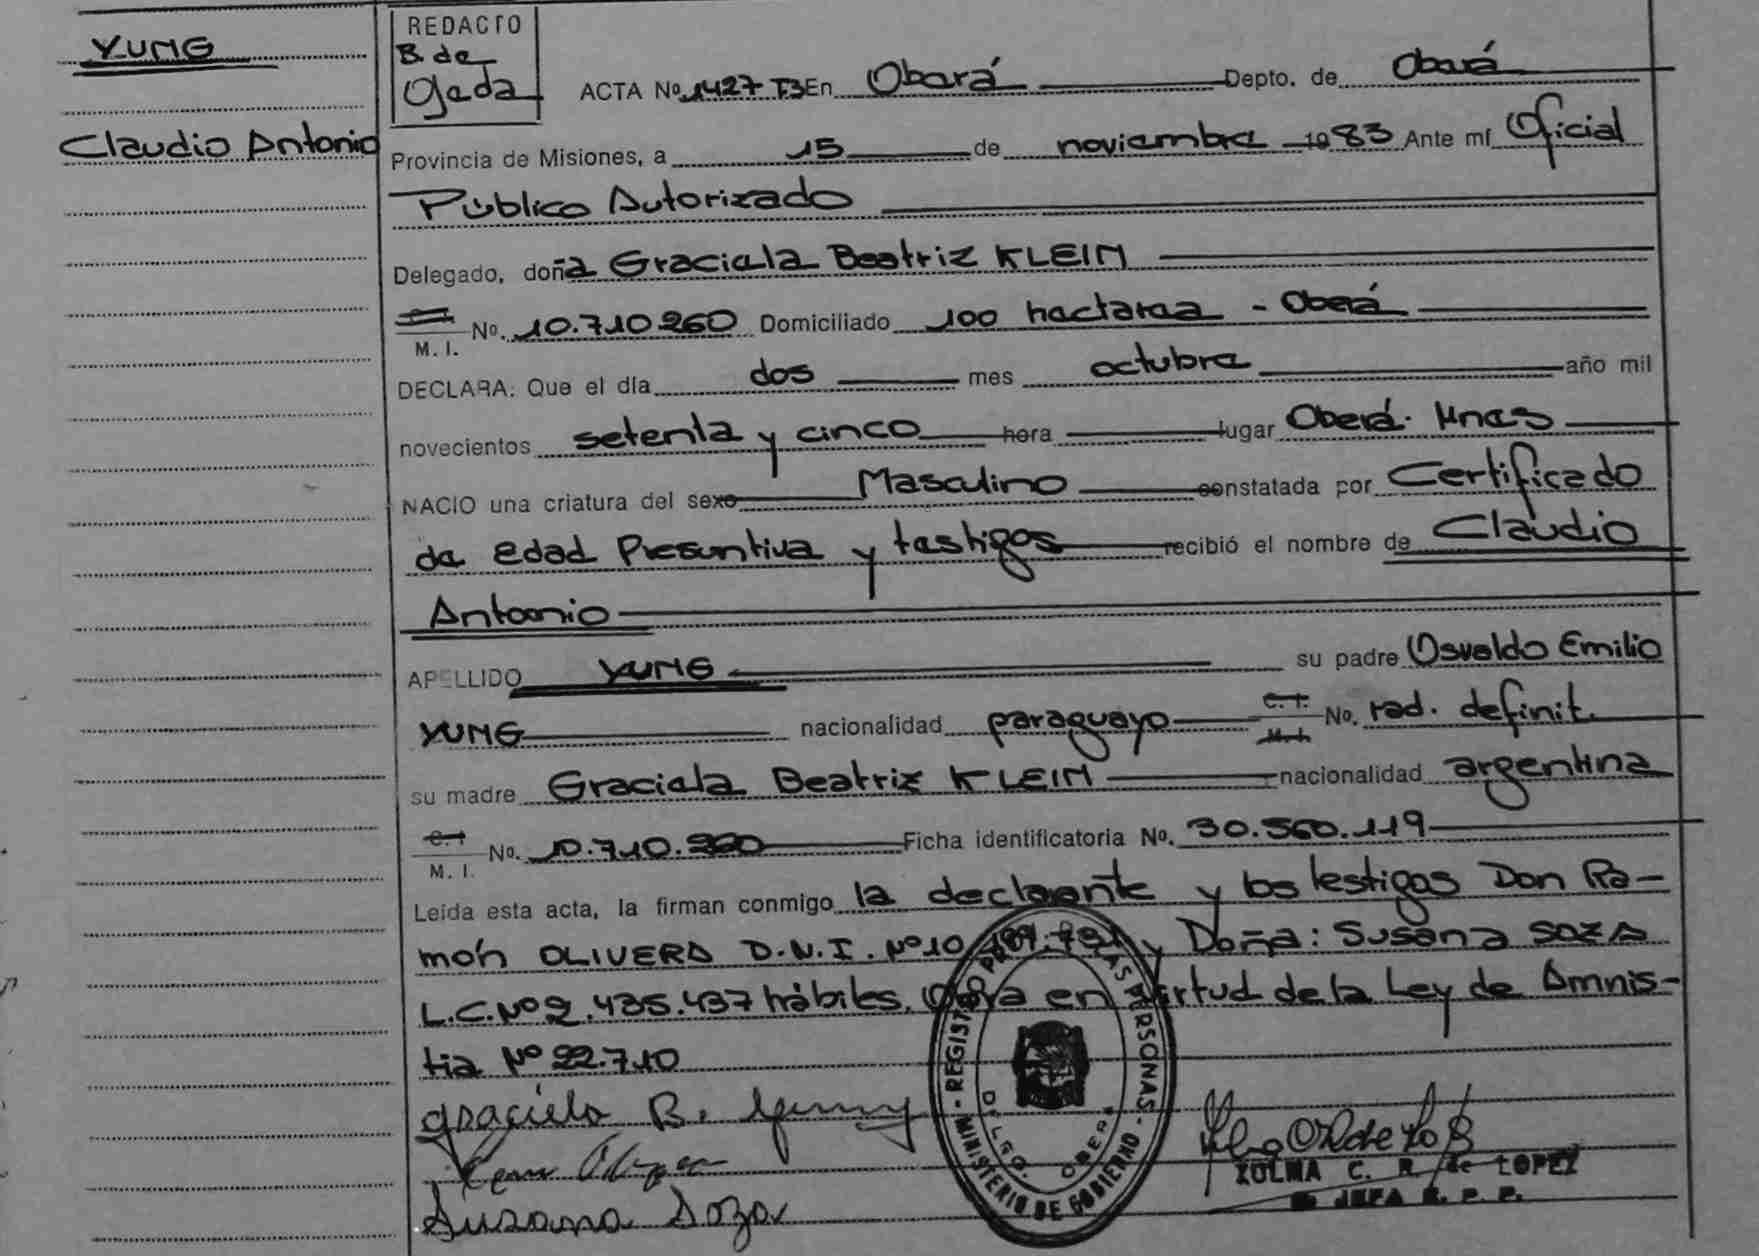 YUNG
Claudio Antonio
REDACTO
B de
Ojeda
ACTA Nº 1427 T3 En Oberá Depto. de Oberá
Provincia de Misiones, a 15 de noviembre 1983 Ante mí Oficial
Público Autorizado
Delegado, doña Graciela Beatriz KLEIN
M. I. No. 10.710.260 Domiciliado 100 hectarea - Oberá
DECLARA: Que el día dos mes octubre año mil
novecientos setenta y cinco hora lugar Oberá. Mnes
NACIO una criatura del sexo Masculino constatada por Certificado
de edad Presuntiva y testigos recibió el nombre de Claudio
Antonio
APELLIDO YUNG su padre Osvaldo Emilio
YUNG nacionalidad paraguayo C. I. M. I. No. rad. definit.
su madre Graciela Beatriz KLEIN nacionalidad argentina
C. I M. I. No. 10.710.260 Ficha identificatoria No. 30.560.119
Leída esta acta, la firman conmigo la declarante y los testigos Don Ra-
món OLIVERA D.N.I. Nº 10 y Doña: Susana SOZA
L.C. Nº 2.435.437 hábiles. en virtud de la Ley de Amnis-
tia Nº 22.710
Graciela B.
Susana Soza
MINISTERIO DE GOBIERNO - REGISTRO PR AS PERSONAS -
DELEG. OBERA
ZULMA C. R. de LOPEZ
JEFA R. P. P.